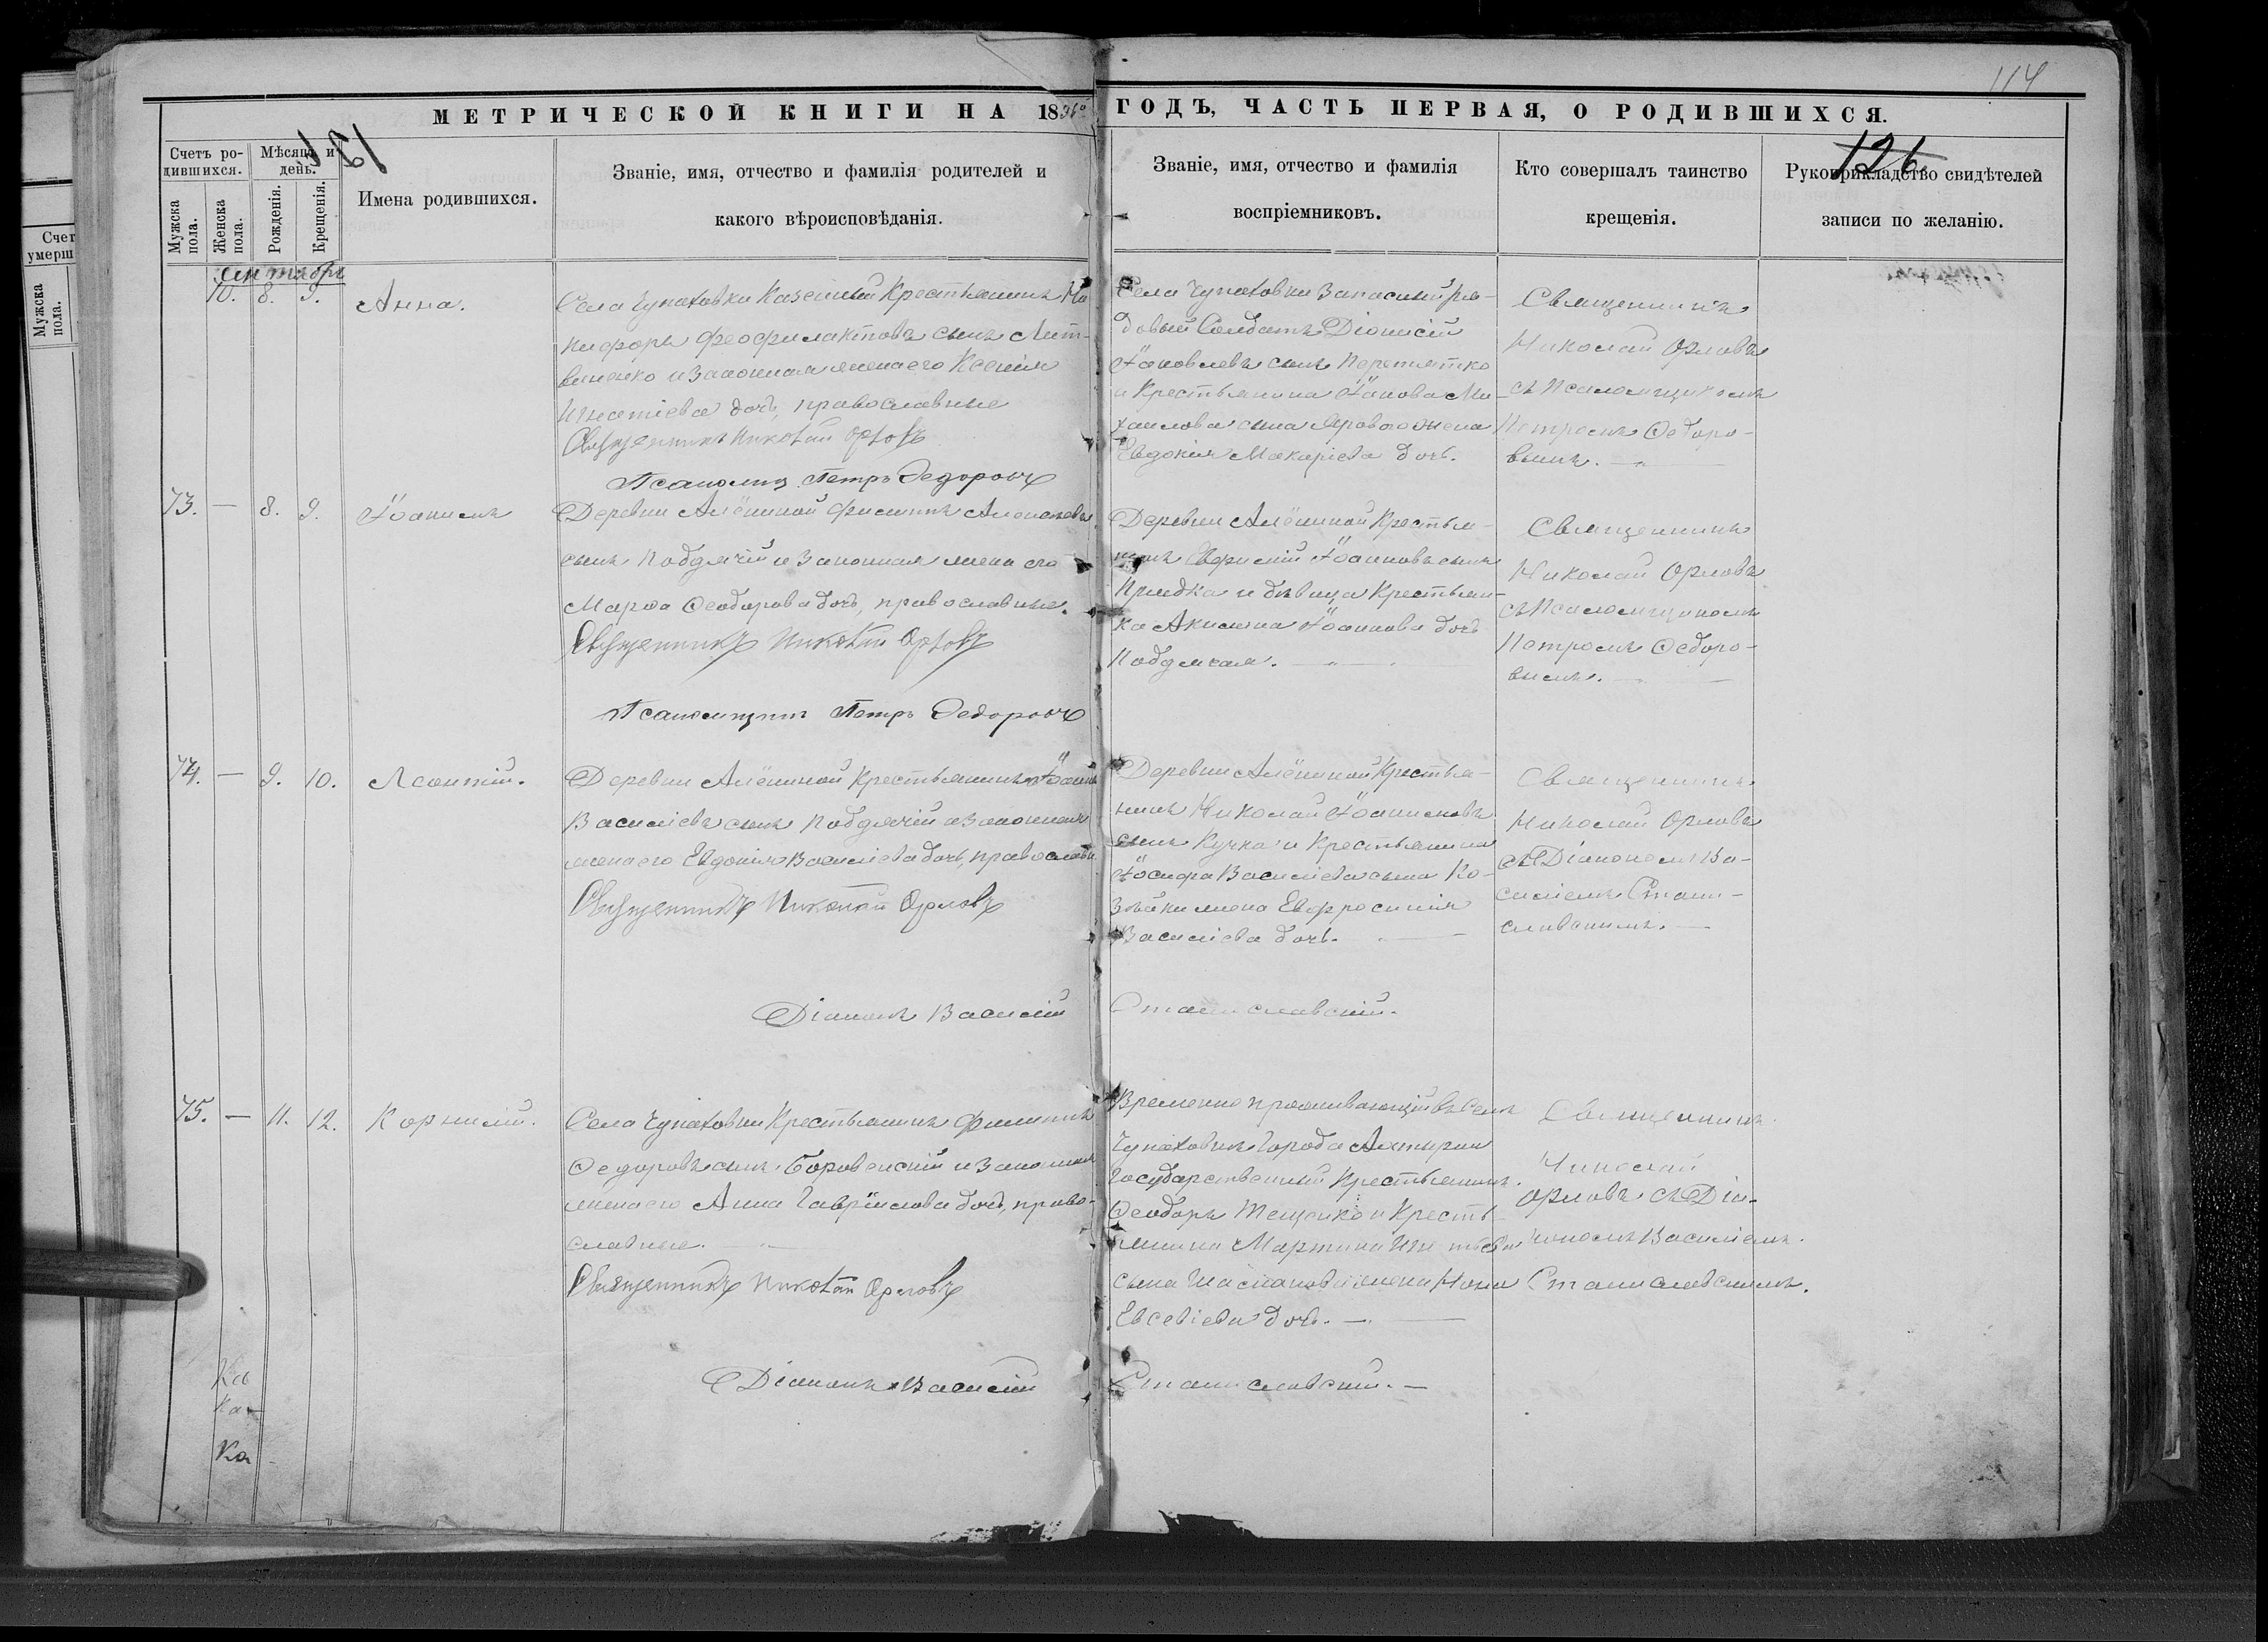 114
МЕТРИЧЕСКОЙ КНИГИ НА 18 ГОДЪ, ЧАСТЬ ПЕРВАЯ, О РОДИВШИХСЯ.
126
Счетъ родившихся.
Мѣсяцъ и день.
Мужска пола.
Женска пола.
Рожденія.
Крещенія.
Имена родившихся.
Званіе, имя, отчество и фамилія родителей и
какого вѣроисповѣданія.
Званіе, имя, отчество и фамилія
воспріемниковъ.
Кто совершалъ таинство
крещенія.
Рукоприкладство свидѣтелей
записи по желанію.
Счет
умерш
Мужска
пола.
10. 8. 9. Анна.
Села Чупаховки Казенный Крестьянинъ Ни-
кифоръ Феофилактовъ сынъ Лит-
виненко и законная жена его Ксенія
Игнатіева дочь, православные
Священникъ Николай Орловъ
Псаломщ. Петръ Федоровъ
Села Чупаховки Запасный Ря-
довый Солдатъ Діонисій
Іаковлевъ сынъ Перепятко
и Крестьянина Іакова Ми-
хаилова сына жена
Евдокія Макаріева дочь.
Священникъ
Николай Орловъ
съ Псаломщикомъ
Петромъ Федоро-
вымъ.
73. — 8. 9. Іоаннъ
Деревни Алёшиной Филиппъ
сынъ Подгачій и Законная жена его
Марѳа Феодорова дочь, православные.
Священникъ Николай Орловъ
Псаломщикъ Петръ Федоровъ
Деревни Алёшиной Крестья-
нинъ Іоанновъ сынъ
и дѣвица Крестьян-
ка Акилина Іоаннова дочь
Священникъ
Николай Орловъ
съ Псаломщикомъ
Петромъ Федоро-
вымъ.
74. — 9. 10. Леонтій.
Деревни Алёшиной Крестьянинъ Іоаннъ
Василіевъ сынъ Подгачій и Законная
жена его Евдокія Василіева дочь, православн
Священникъ Николай Орловъ
Діаконъ Василій Станиславскій.
Деревни Алёшиной Крестья-
нинъ Николай
сынъ Кучка и Крестьянина
Іосифа Василіева сына Ко-
жена Евфросинія
Василіева дочь.
Священникъ
Николай Орловъ
съ Діакономъ Ва-
силіемъ Стани-
славскимъ.
75. — 11. 12. Корнилій.
Села Чупаховки Крестьянинъ Филиппъ
Федоровъ сынъ Боровенскій и Законная
жена его Анна Гавріилова дочь, право-
славные.
Священникъ Николай Орловъ
Діаконъ Василій Станиславскій.
Временно проживающій въ Селѣ
Чупаховкѣ Города Ахтырки
Государственный Крестьянинъ
Феодоръ Тещенко и Кресть-
янина Мартина
сына жена
Евсевіева дочь.
Священникъ
Николай
Орловъ съ Діа-
кономъ Василіемъ
Станиславскимъ.
Ка
Ка
Ка